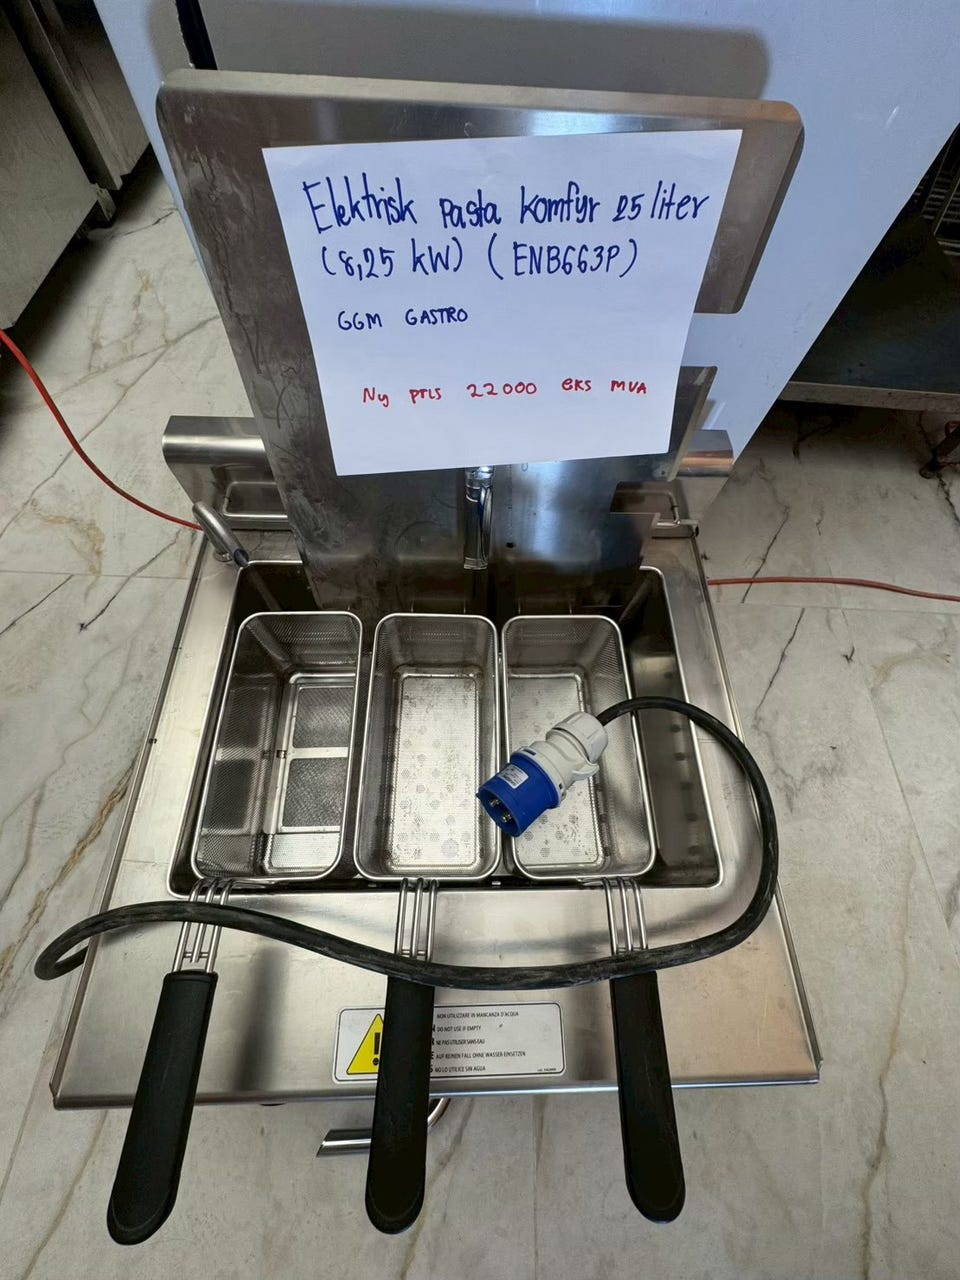 Elektrisk pasta komfyr 25 liter
(8,25 kW) (ENB663P)
GGM GASTRO
Ny pris 22000 eks MVA
NON UTILIZZARE IN MANCANZA D'ACQUA
DO NOT USE IF EMPTY
NE PAS UTILISER SANS EAU
AUF KEINEN FALL OHNE WASSER EINSETZEN
NO LO UTILICE SIN AGUA